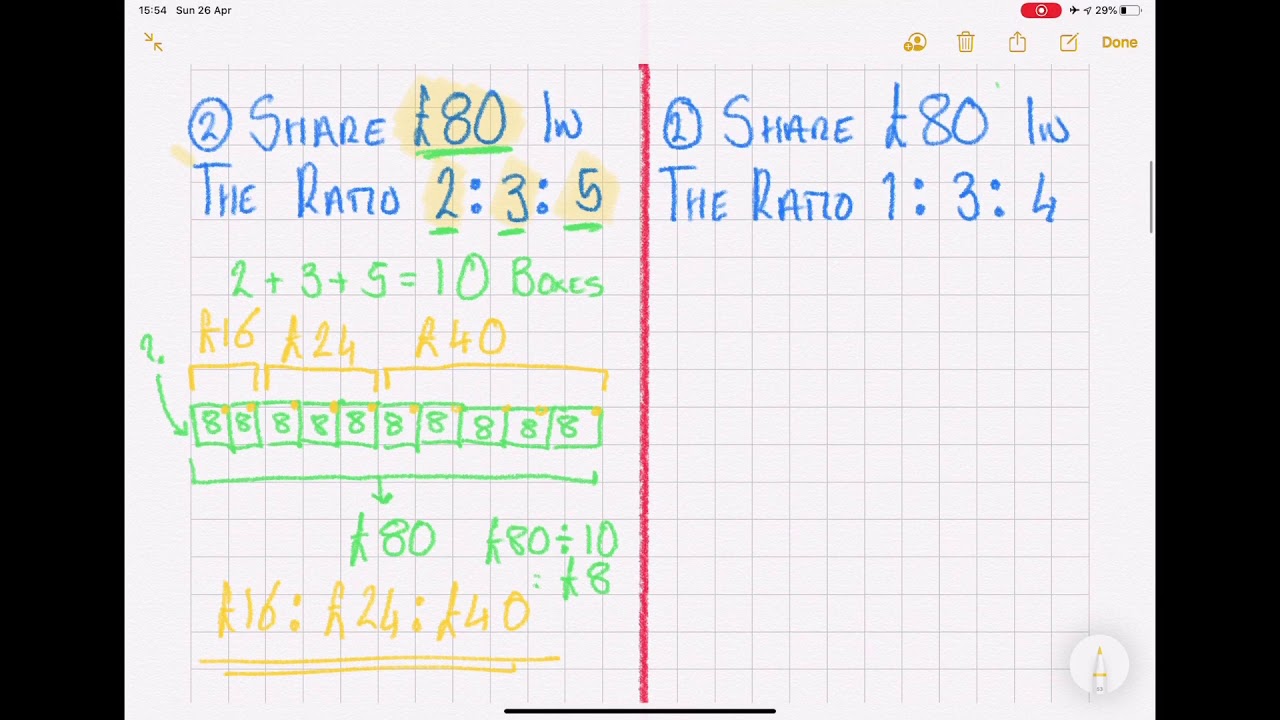 15:54 Sun 26 Apr
29%
Done
② SHARE £80 IN
THE RATIO 2:3:5
2 + 3 + 5 = 10 BOXES
£16 £24 £40
?
8 8 8 8 8 8 8 8 8 8
£80 £80 ÷ 10
= £8
£16 : £24 : £40
② SHARE £80 IN
THE RATIO 1:3:4